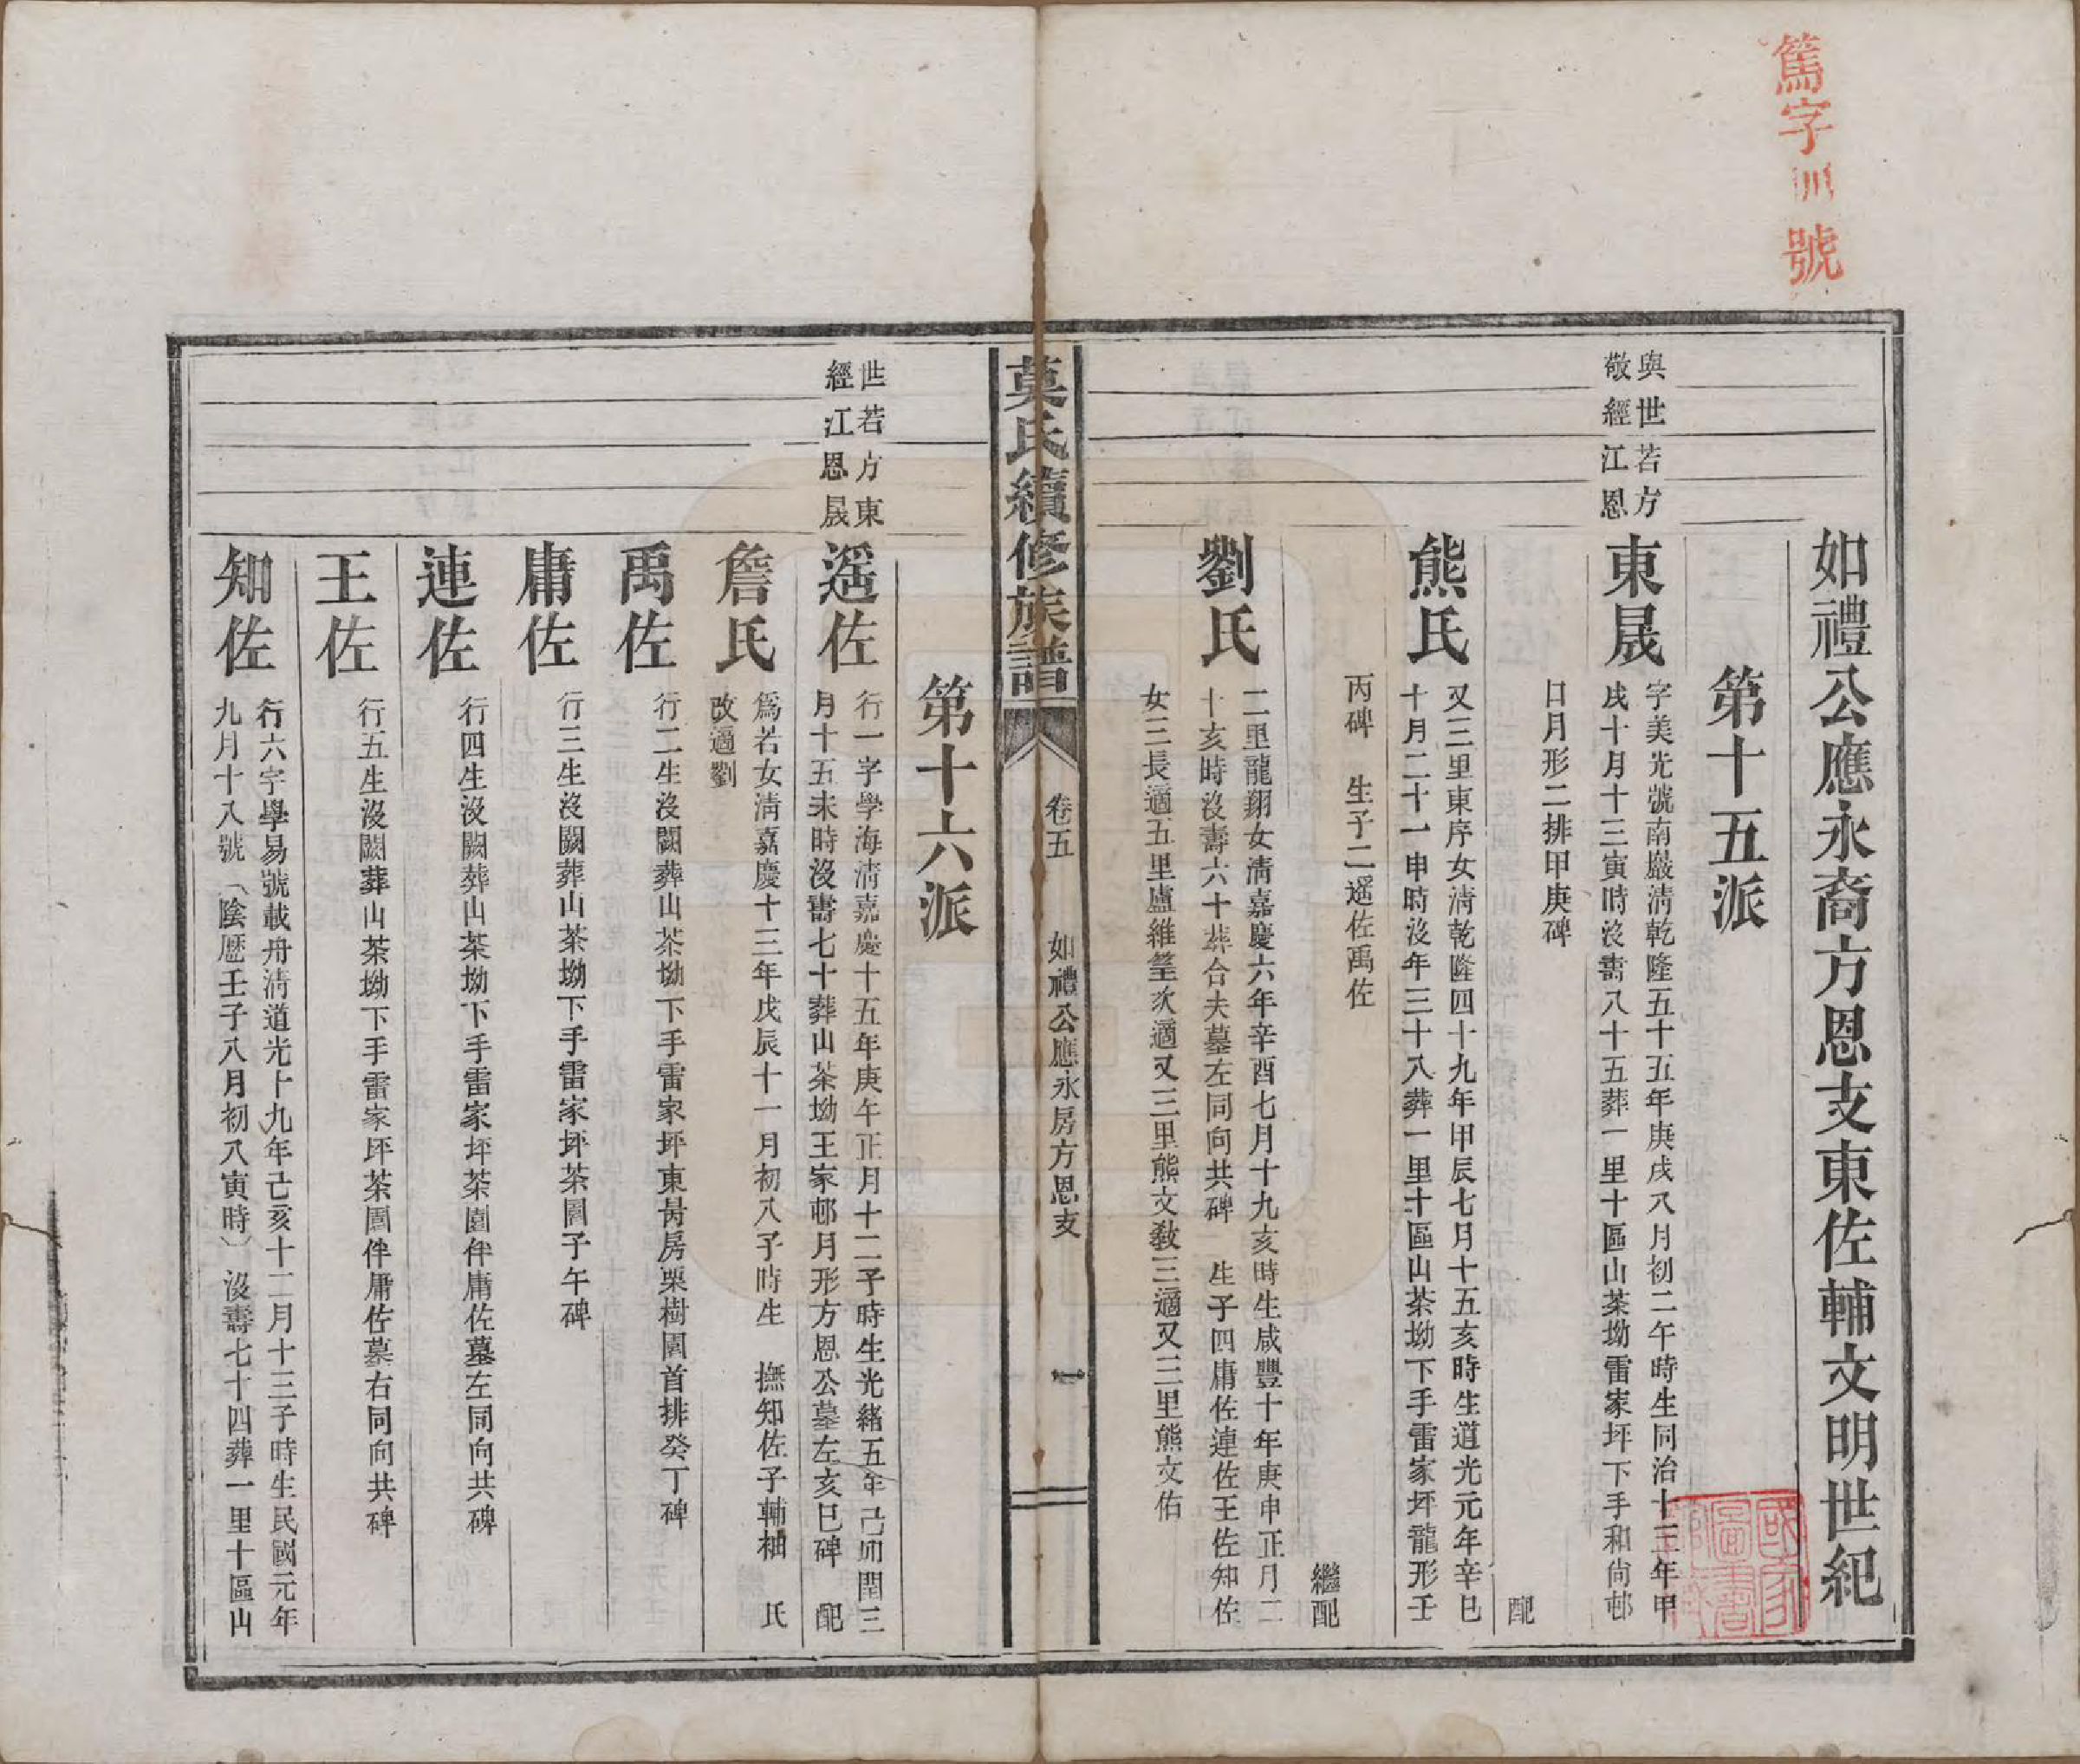 篤字 號
如禮公應永裔方恩支東佐輔文明世紀
第十五派
與世若方
敬經江恩
東晟
字美光號南巖清乾隆五十五年庚戌八月初二午時生同治十三年甲
戌十月十三寅時沒壽八十五葬一里十區山茶坳雷家坪下手和尚邨
日月形二排甲庚碑
配
熊氏
又三里東序女清乾隆四十九年甲辰七月十五亥時生道光元年辛巳
十月二十一申時沒年三十八葬一里十區山茶坳下手雷家坪龍形壬
丙碑 生子二遥佐禹佐
繼配
劉氏
二里龍翔女清嘉慶六年辛酉七月十九亥時生咸豐十年庚申正月二
十亥時沒壽六十葬合夫墓左同向共碑 生子四庸佐連佐王佐知佐
女三長適五里盧維篁次適又三里熊文敎三適又三里熊文佑
莫氏續修族譜
卷五 如禮公應永房方恩支
一
第十六派
世若方東
經江恩晟
遥佐
行一字學海清嘉慶十五年庚午正月十二子時生光緒五年己卯閏三
月十五未時沒壽七十葬山茶坳王家邨月形方恩公墓左亥巳碑 配
詹氏
爲若女清嘉慶十三年戊辰十一月初八子時生 撫知佐子輔袖 氏
改適劉
禹佐
行二生沒闕葬山茶坳下手雷家坪東昺房栗樹園首排癸丁碑
庸佐
行三生沒闕葬山茶坳下手雷家坪茶園子午碑
連佐
行四生沒闕葬山茶坳下手雷家坪茶園伴庸佐墓左同向共碑
王佐
行五生沒闕葬山茶坳下手雷家坪茶園伴庸佐墓右同向共碑
知佐
行六字學易號載舟清道光十九年己亥十二月十三子時生民國元年
九月十八號（陰歷壬子八月初八寅時）沒壽七十四葬一里十區山